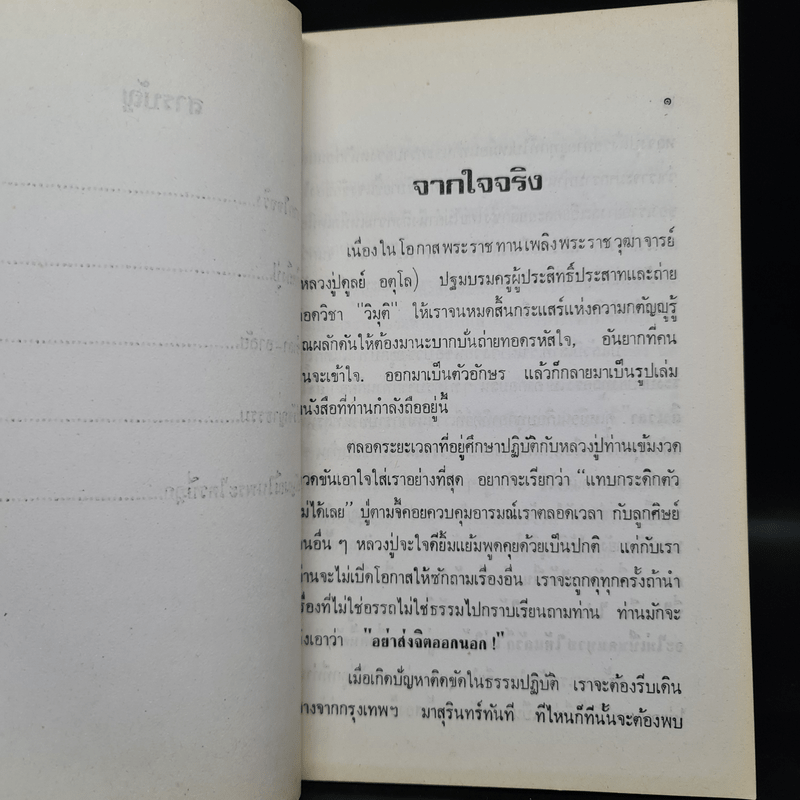 สารบัญ
๑
จากใจจริง
เนื่องในโอกาสพระราชทานเพลิงพระราชวุฒาจารย์
หลวงปู่ดูลย์ อตุโล) ปฐมบรมครูผู้ประสิทธิ์ประสาทและถ่าย
อดวิชา "วิมุติ" ให้เราจนหมดสิ้นกระแสร์แห่งความกตัญญูรู้
ณผลักดันให้ต้องมานะบากบั่นถ่ายทอดรหัสใจ, อันยากที่คน
นจะเข้าใจ. ออกมาเป็นตัวอักษร แล้วก็กลายมาเป็นรูปเล่ม
นังสือที่ท่านกำลังถืออยู่นี้
ตลอดระยะเวลาที่อยู่ศึกษาปฏิบัติกับหลวงปู่ท่านเข้มงวด
วดขันเอาใจใส่เราอย่างที่สุด อยากจะเรียกว่า “แทบกระดิกตัว
ม่ได้เลย” ปู่ตามจี้คอยควบคุมอารมณ์เราตลอดเวลา กับลูกศิษย์
นอื่น ๆ หลวงปู่จะใจดียิ้มแย้มพูดคุยด้วยเป็นปกติ แต่กับเรา
่านจะไม่เปิดโอกาสให้ซักถามเรื่องอื่น เราจะถูกดุทุกครั้งถ้านำ
รื่องที่ไม่ใช่อรรถไม่ใช่ธรรมไปกราบเรียนถามท่าน ท่านมักจะ
ังเอาว่า "อย่าส่งจิตออกนอก !"
เมื่อเกิดปัญหาติดขัดในธรรมปฏิบัติ เราจะต้องรีบเดิน
างจากกรุงเทพฯ มาสุรินทร์ทันที ที่ไหนก็ที่นั้นจะต้องพบ